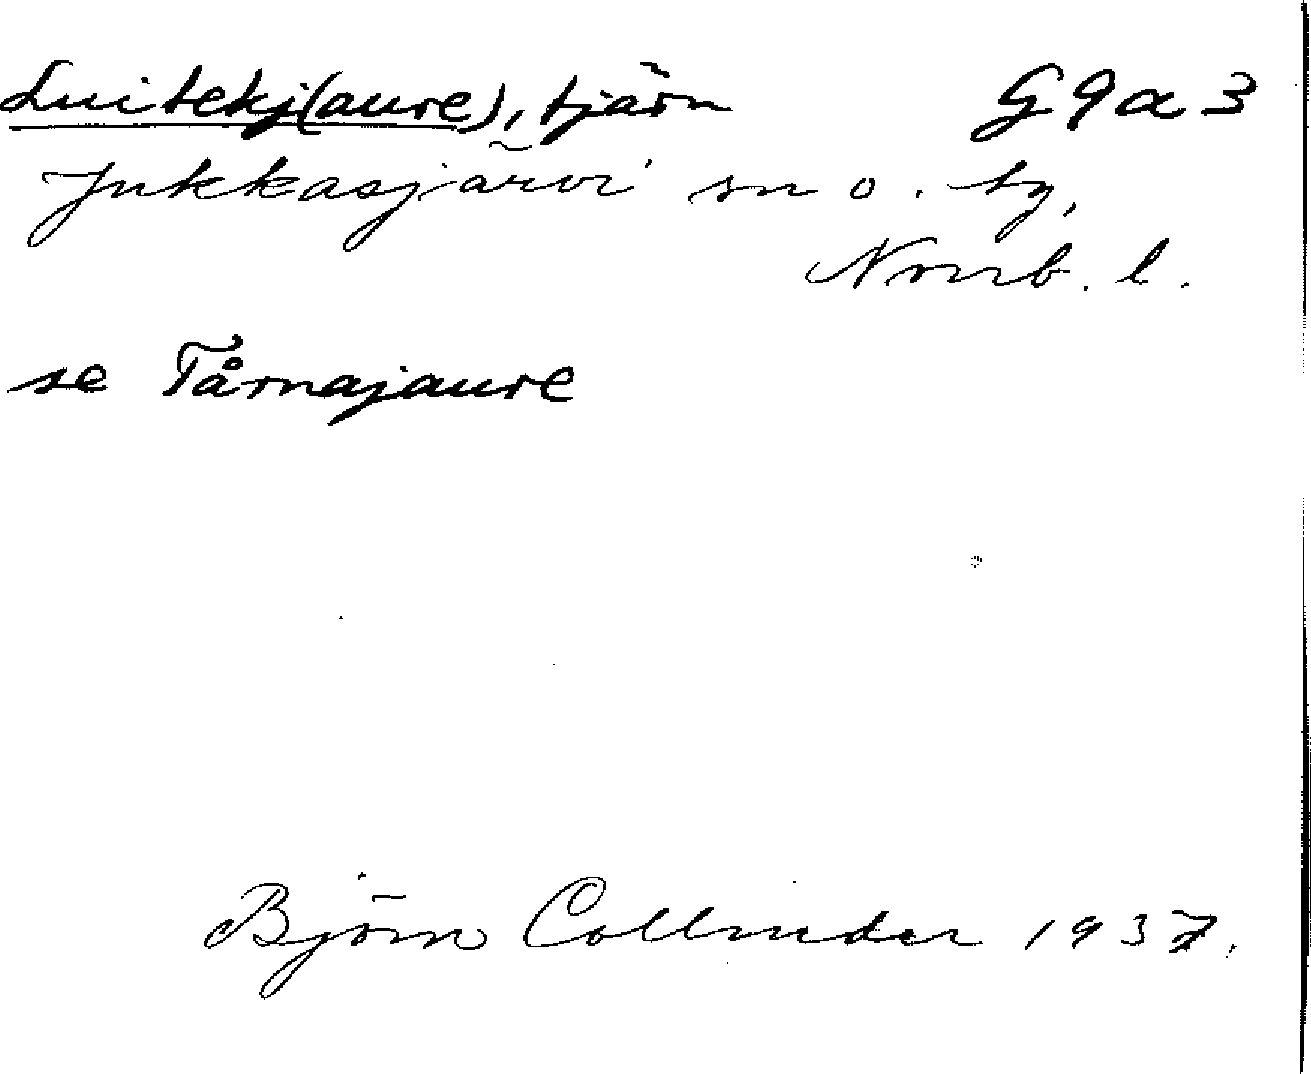 Luitekj(aure), tjärn G9a3
Jukkasjärvi sn o. tg,
Norrb. l.
se Tårnajaure
Björn Collinder 1937.